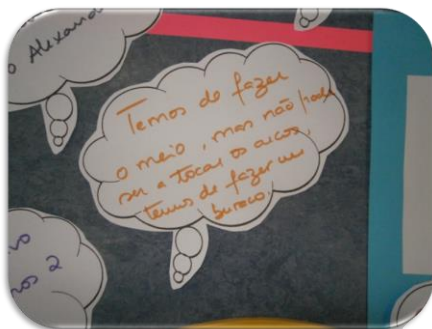 o Alexand
Temos de fazer
o meio, mas não pode
ser a tocar os arcos,
temos de fazer um
buraco.
nos 2